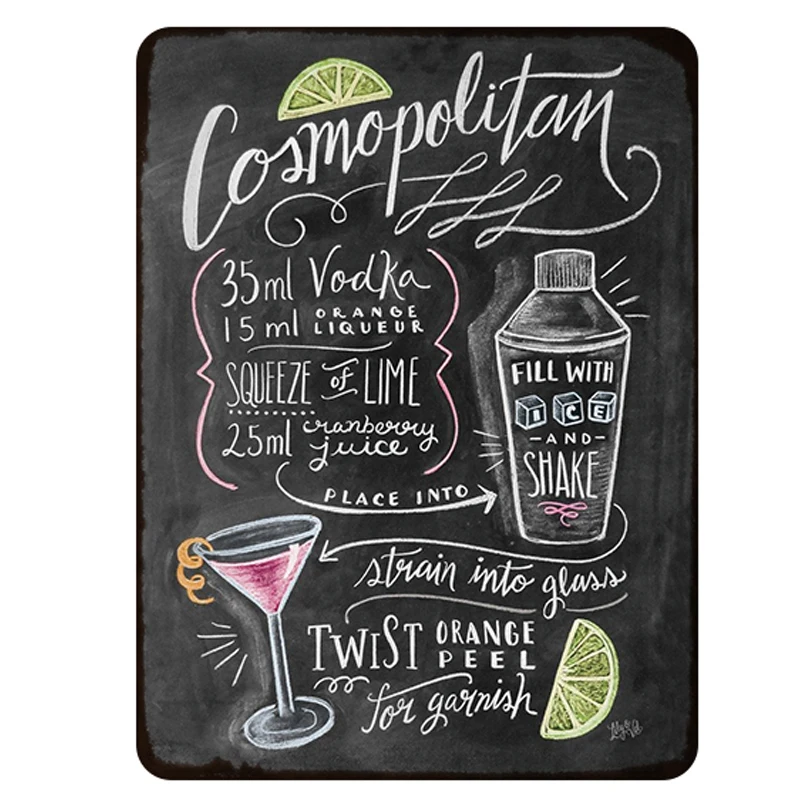 Cosmopolitan
35ml Vodka
15 ml ORANGE LIQUEUR
SQUEEZE of LIME
25ml cranberry juice
PLACE INTO
FILL WITH
ICE
-AND-
SHAKE
strain into glass
TWIST ORANGE PEEL
for garnish
Lily & Val